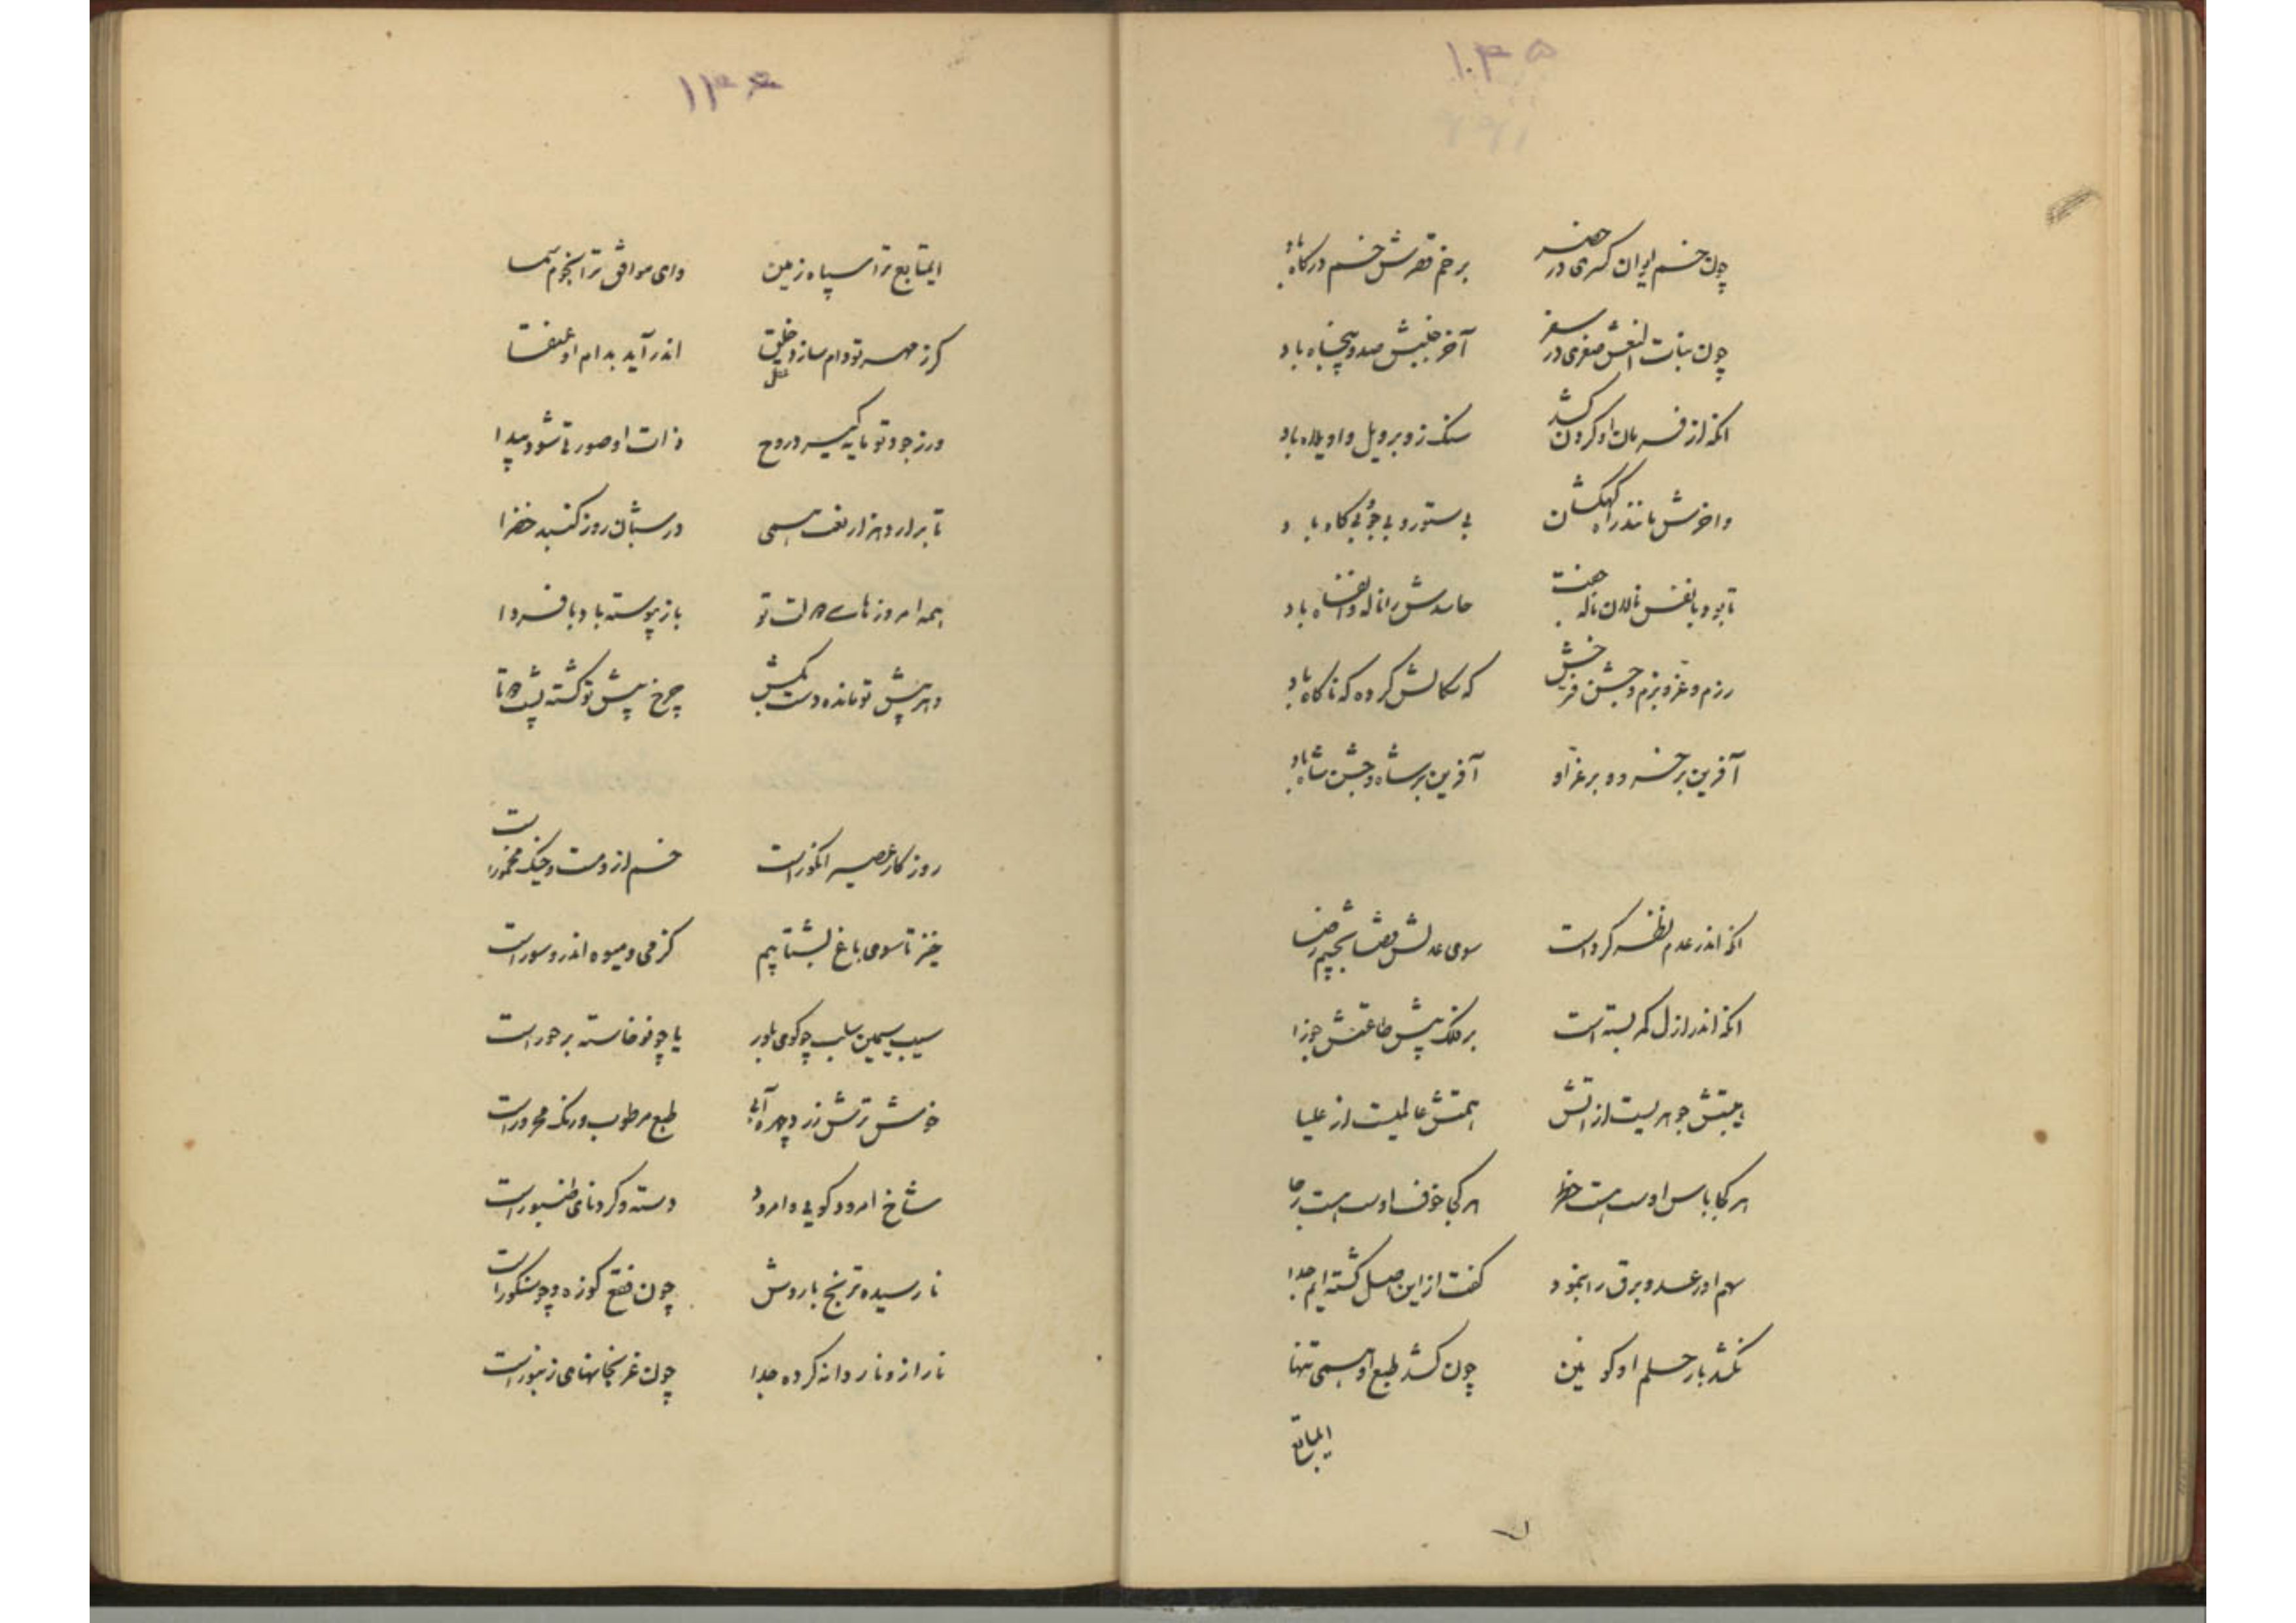 ۱۳۵
چون خم ایوان کسری در حضر    بر خم قصرش خم درگاه باد
چون بنات النعش صغری در سفر    آخر خنبش صد و پنجاه باد
انکه از فرمان او گردن کشد    سنک زو بر ویل و واویلاه باد
واخرش مانند راه کهکشان    بی ستور و بی جو و بی کاه باد
تا بود با نفس نالان ناله جفت    حاسدش را ناله و انفاه باد
رزم و غزو و بزم و جشن فرخش    که سکالش کرده که ناکاه باد
آفرین بر خسرو و بر غزو او    آفرین بر شاه و جشن شاه باد
انکه اندر عدم نظر کرد است    سوی عدلش قضا بچشم رضا
انکه اندر ازل کمر بسته است    بر فلک پیش طاعتش جوزا
هیبتش جوهریست از اتش    همتش عالمیست از علیا
هر کجا باس اوست هست خطر    هر کجا خوف اوست هست رجا
سهم او رعد و برق را بنمود    کفت از این اصل کشته ایم جدا
نکشد بار حلم او کونین    چون کشد طبع او همی تنها
ایمتابع
۱۳۶
ایمتابع ترا سپاه زمین    وای موافق ترا نجوم سما
کر ز مهر تو دام سازد خلق    اندر آید بدام او عنقا
ور ز جود تو مایه کیرد روح    ذات او صورتا شود پیدا
تا برارد هزار نفس همی    در شبان روز کنبد خضرا
همه امروزهای دولت تو    باز پیوسته باد با فردا
دهر پیش تو مانده دست بکش    چرخ پیش تو کشته پشت دوتا
روزکار عصیر انکور است    خم ازو مست و چنک مخمور است
خیز تا سوی باغ بشتابیم    کز می و میوه اندرو سور است
سیب سیمین سلب چو کوی بلور    یا چو نو خاسته بر حور است
خوش ترش زرد چهره آبی    طبع مرطوب و رنک محرور است
شاخ امرود کویی و امرود    دسته و کردنای طنبور است
نارسیده ترنج بارورش    چون فقع کوزه و چو سنکور است
نار ازو نار دانه کرده جدا    چون غزنجانهای زنبور است